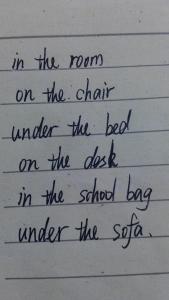 in the room
on the chair
under the bed
on the desk
in the school bag
under the sofa.